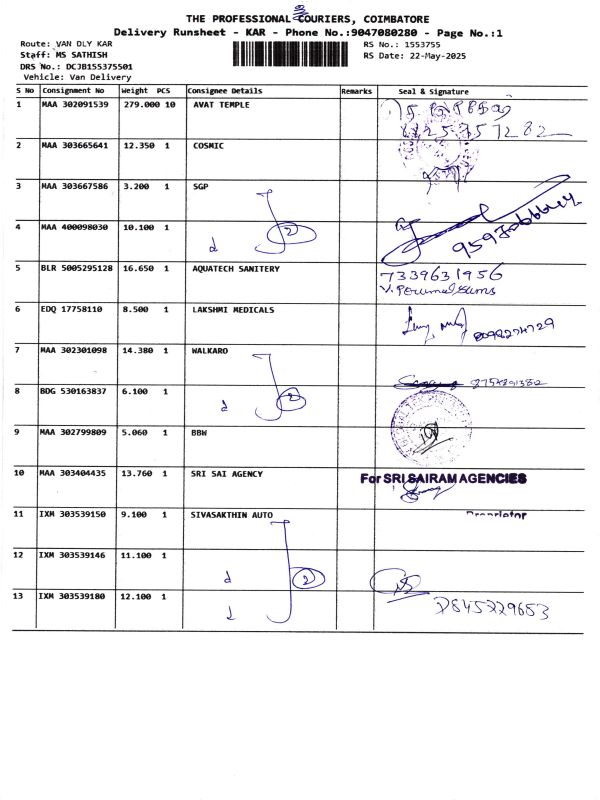 THE PROFESSIONAL COURIERS, COIMBATORE
Delivery Runsheet - KAR - Phone No.:9047080280 - Page No.:1
Route: VAN DLY KAR
Staff: MS SATHISH
DRS No.: DCJB155375501
Vehicle: Van Delivery
RS No.: 1553755
RS Date: 22-May-2025
S No Consignment No Weight PCS Consignee Details Remarks Seal & Signature
1 MAA 302091539 279.000 10 AVAT TEMPLE
2 MAA 303665641 12.350 1 COSMIC
3 MAA 303667586 3.200 1 SGP
4 MAA 400098030 10.100 1 d 2
5 BLR 5005295128 16.650 1 AQUATECH SANITERY 7339631956
6 EDQ 17758110 8.500 1 LAKSHMI MEDICALS
7 MAA 302301098 14.380 1 WALKARO
8 BDG 530163837 6.100 1 d 2
9 MAA 302799809 5.060 1 BBW
10 MAA 303404435 13.760 1 SRI SAI AGENCY For SRI SAIRAM AGENCIES
11 IXM 303539150 9.100 1 SIVASAKTHIN AUTO Proprietor
12 IXM 303539146 11.100 1 d 2
13 IXM 303539180 12.100 1 d